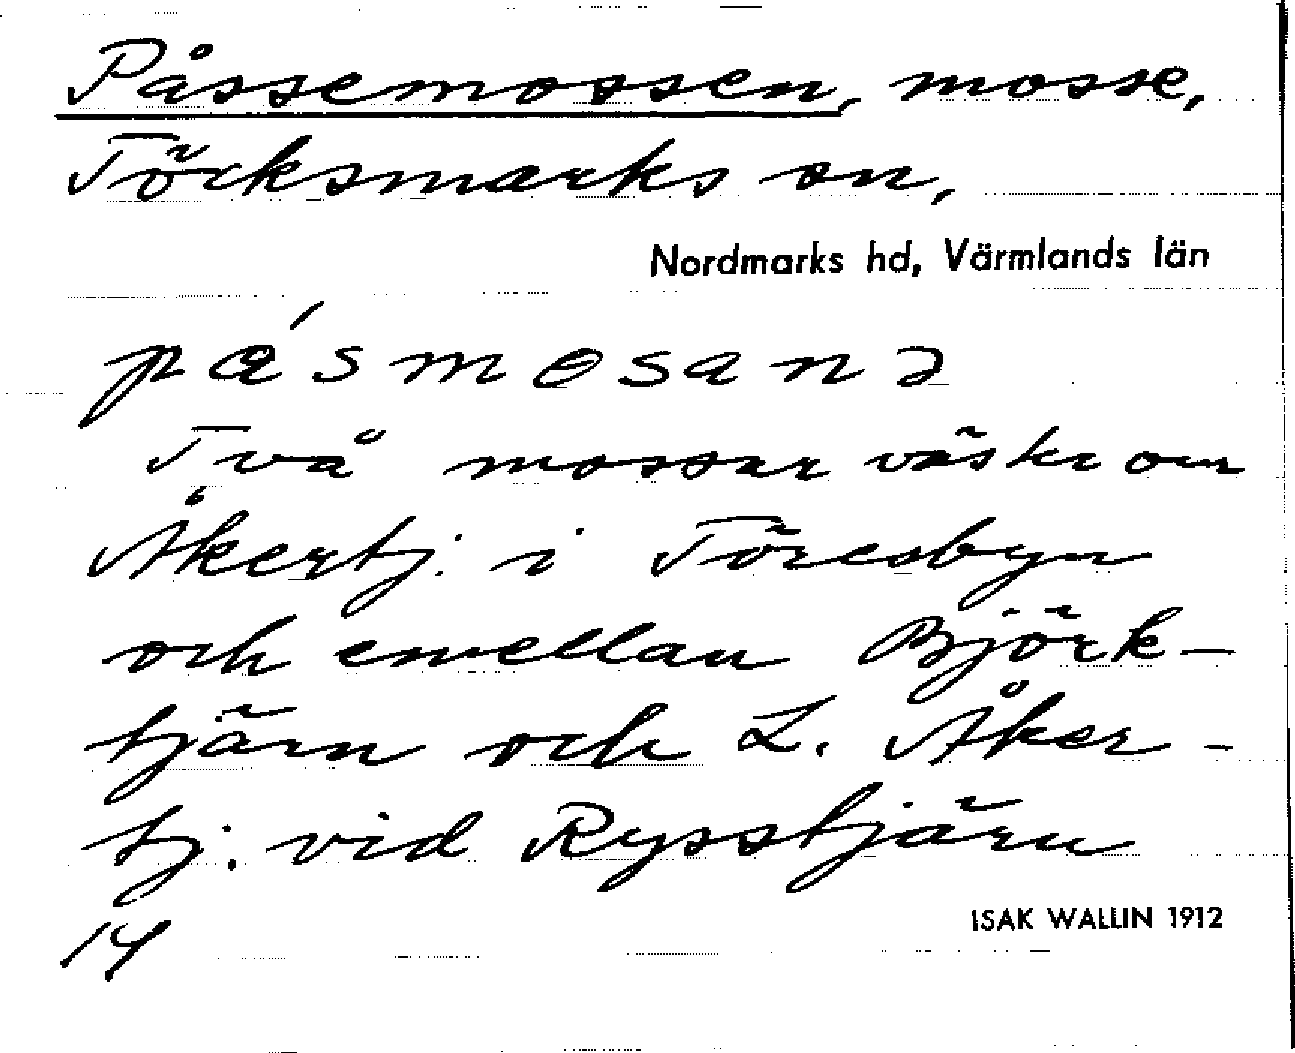 Påssemossen, mosse,
Töcksmarks sn,
Nordmarks hd, Värmlands län
påsmosana
Två mossar väster om
Åkertj. i Töresbyn
och emellan Björk-
tjärn och L. Åker-
tj. vid Rysstjärn
ISAK WALLIN 1912
14